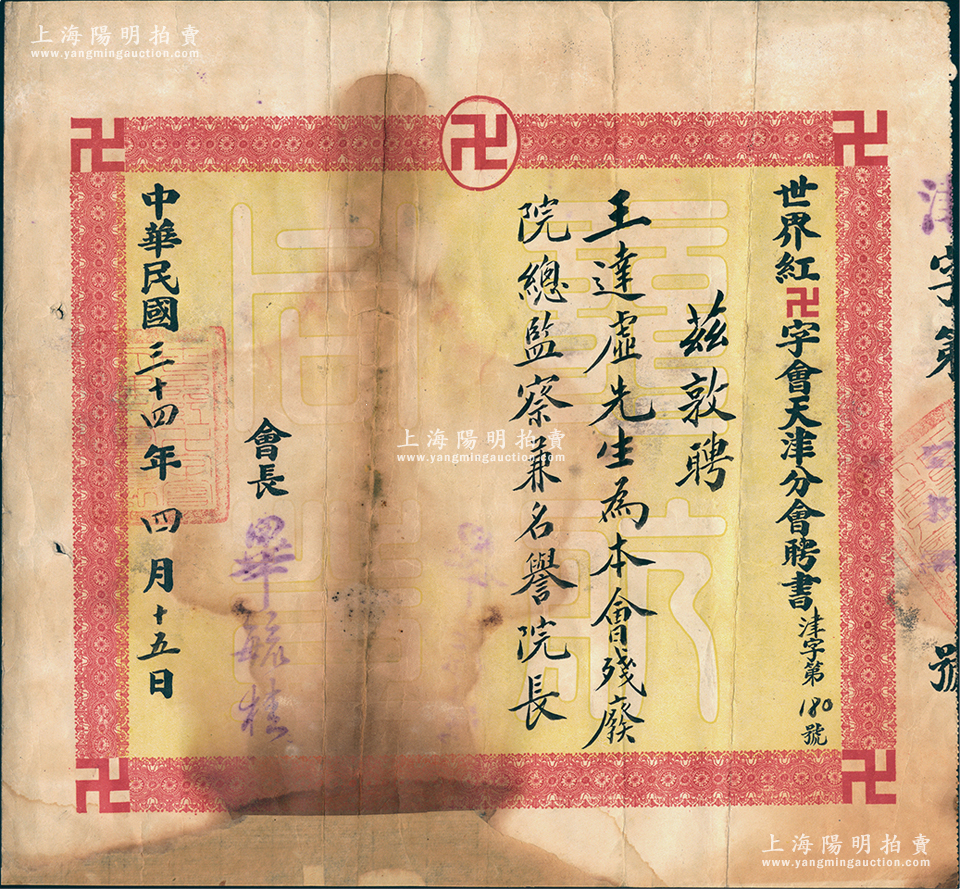 上海陽明拍賣
www.yangmingauction.com
字第
號
世界紅卍字會天津分會聘書
津字第180號
茲敦聘
王達虛先生為本會殘廢
院總監察兼名譽院長
會長
畢毓桂
中華民國三十四年四月十五日
上海陽明拍賣
www.yangmingauction.com
上海陽明拍賣
www.yangmingauction.com